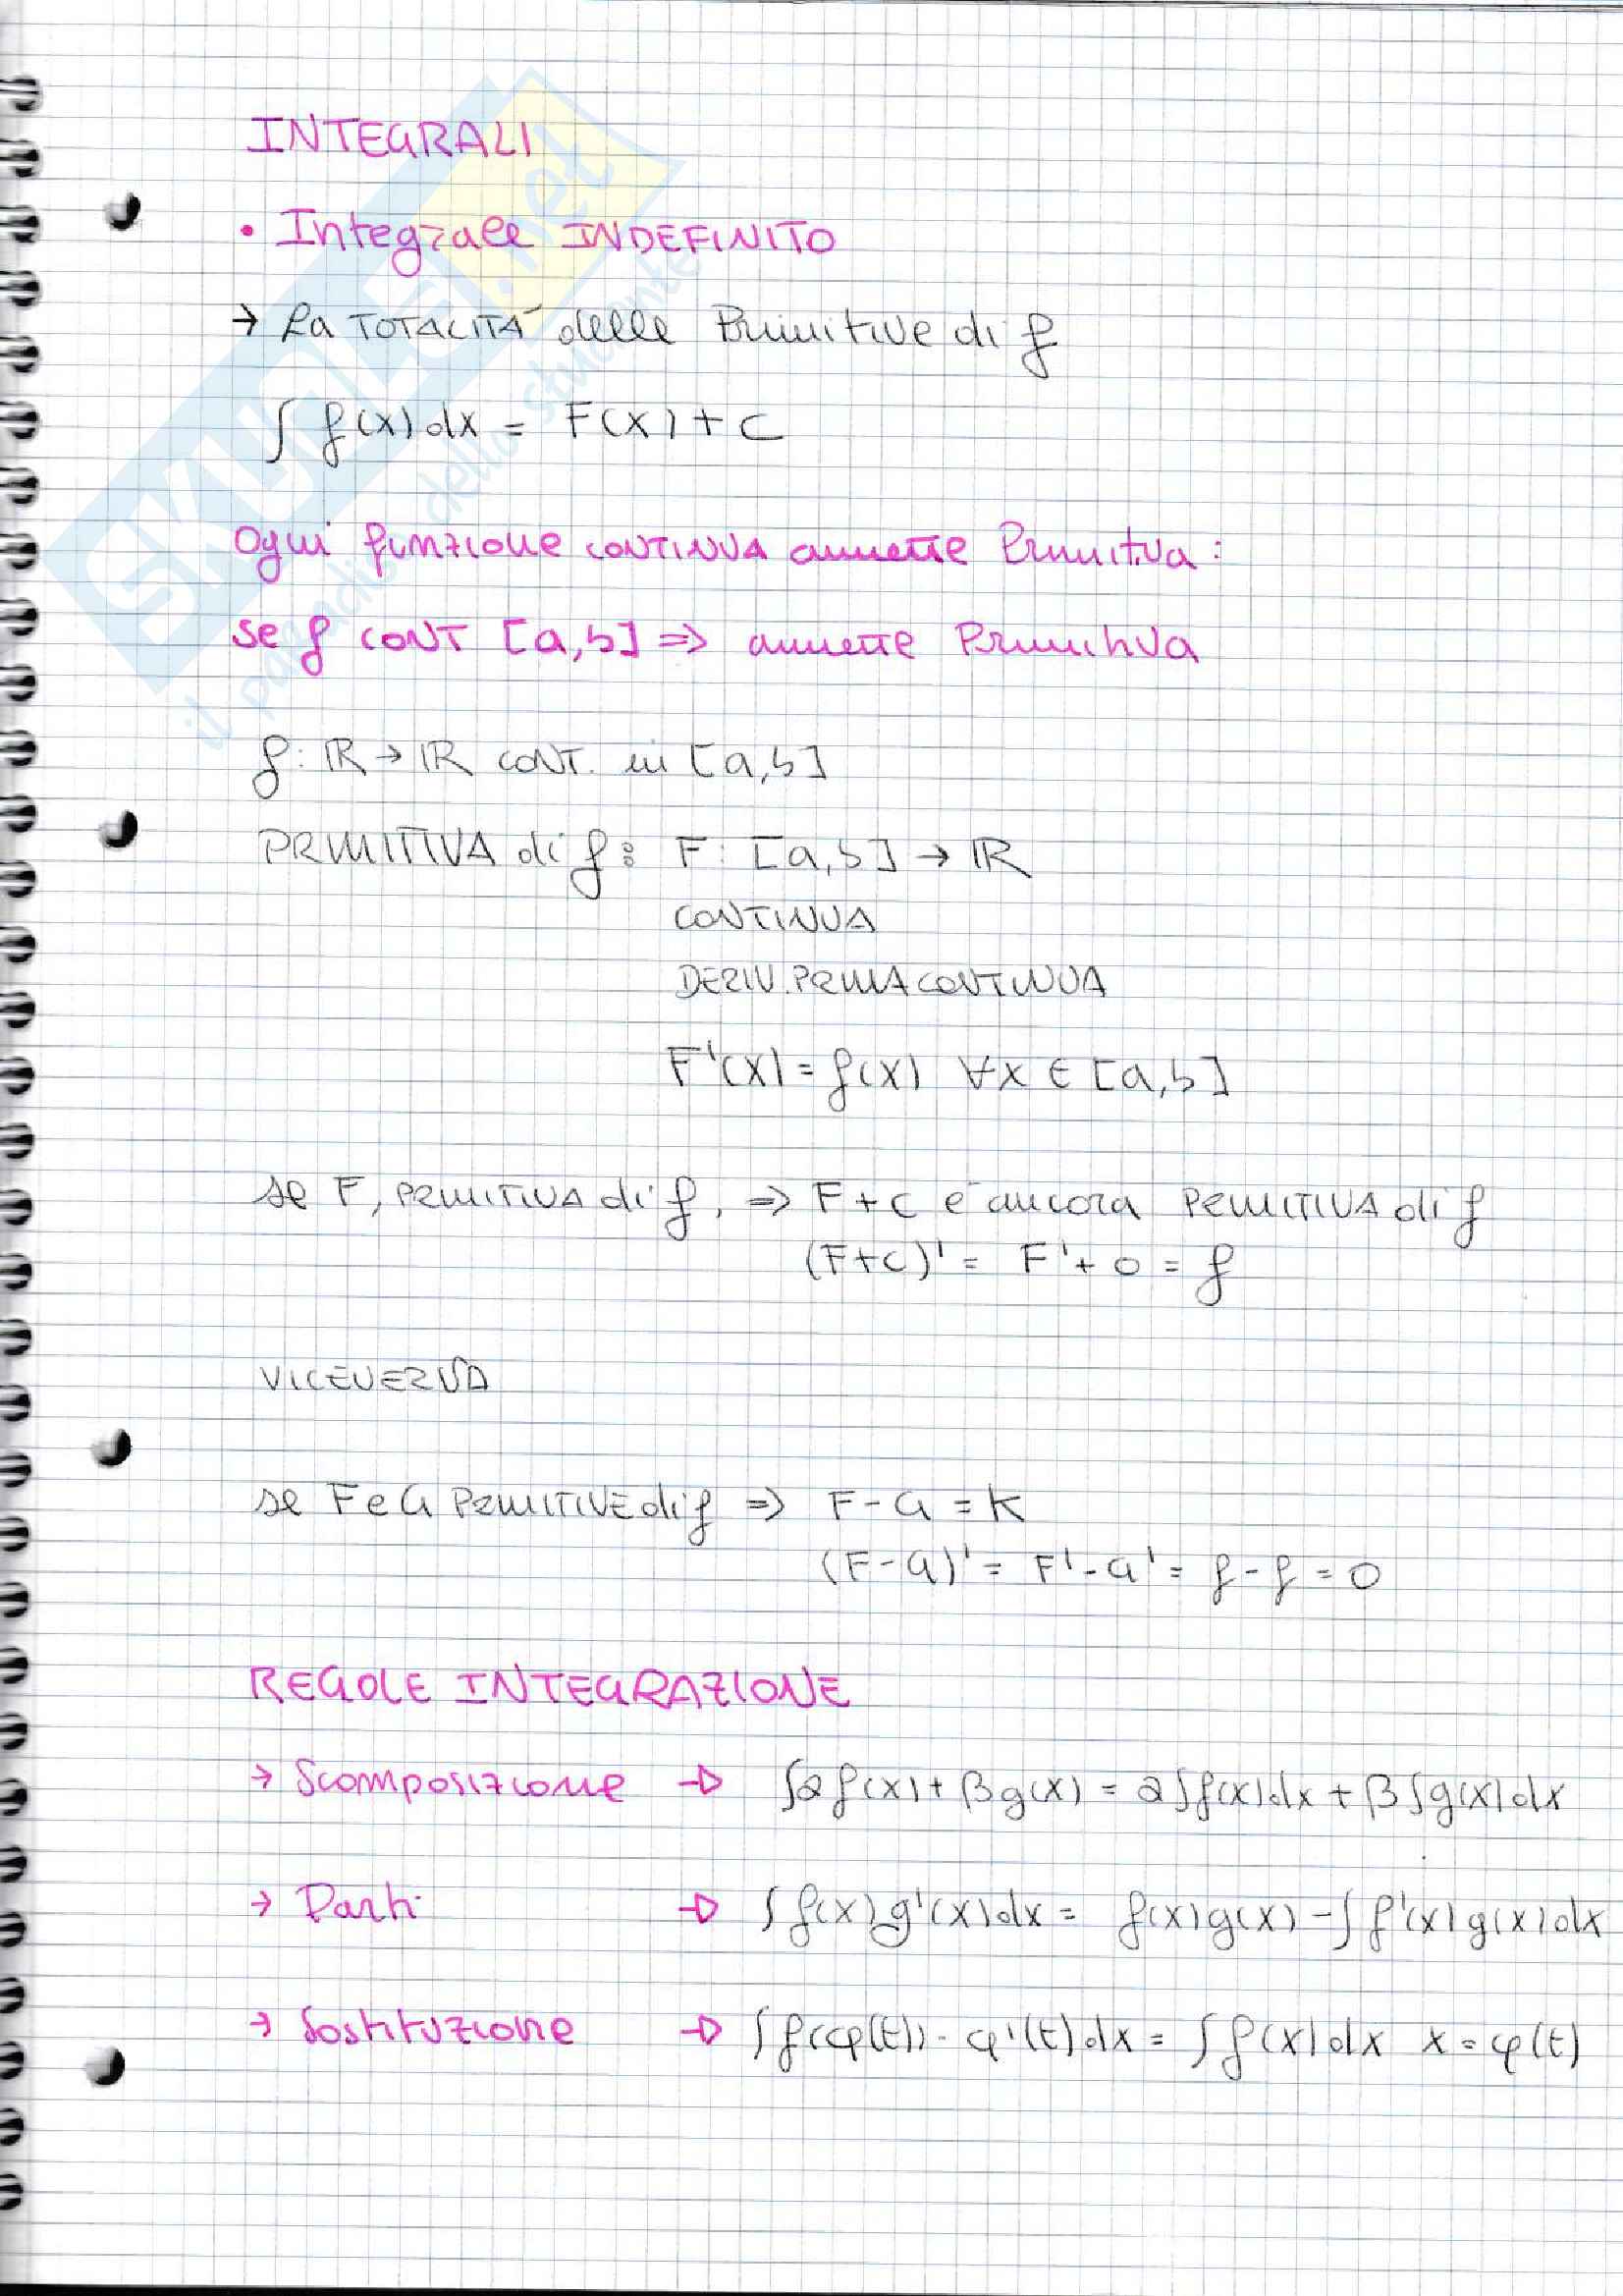 INTEGRALI
• Integrale INDEFINITO
→ la TOTALITÀ delle Primitive di f
∫ f(x) dx = F(x) + c
Ogni funzione CONTINUA ammette Primitiva :
se f CONT [a,b] => ammette Primitiva
f : ℝ → ℝ CONT. in [a,b]
PRIMITIVA di f : F : [a,b] → ℝ
CONTINUA
DERIV. PRIMA CONTINUA
F'(x) = f(x) ∀x ∈ [a,b]
se F, PRIMITIVA di f, => F + c è ancora PRIMITIVA di f
(F+c)' = F' + 0 = f
VICEVERSA
se F e G PRIMITIVE di f => F - G = K
(F - G)' = F' - G' = f - f = 0
REGOLE INTEGRAZIONE
→ Scomposizione → ∫α f(x) + β g(x) = α ∫f(x) dx + β ∫g(x) dx
→ Parti → ∫ f(x) g'(x) dx = f(x) g(x) - ∫ f'(x) g(x) dx
→ Sostituzione → ∫ f(φ(t)) · φ'(t) dx = ∫ f(x) dx x = φ(t)
SKUOLA.net
il paradiso dello studente